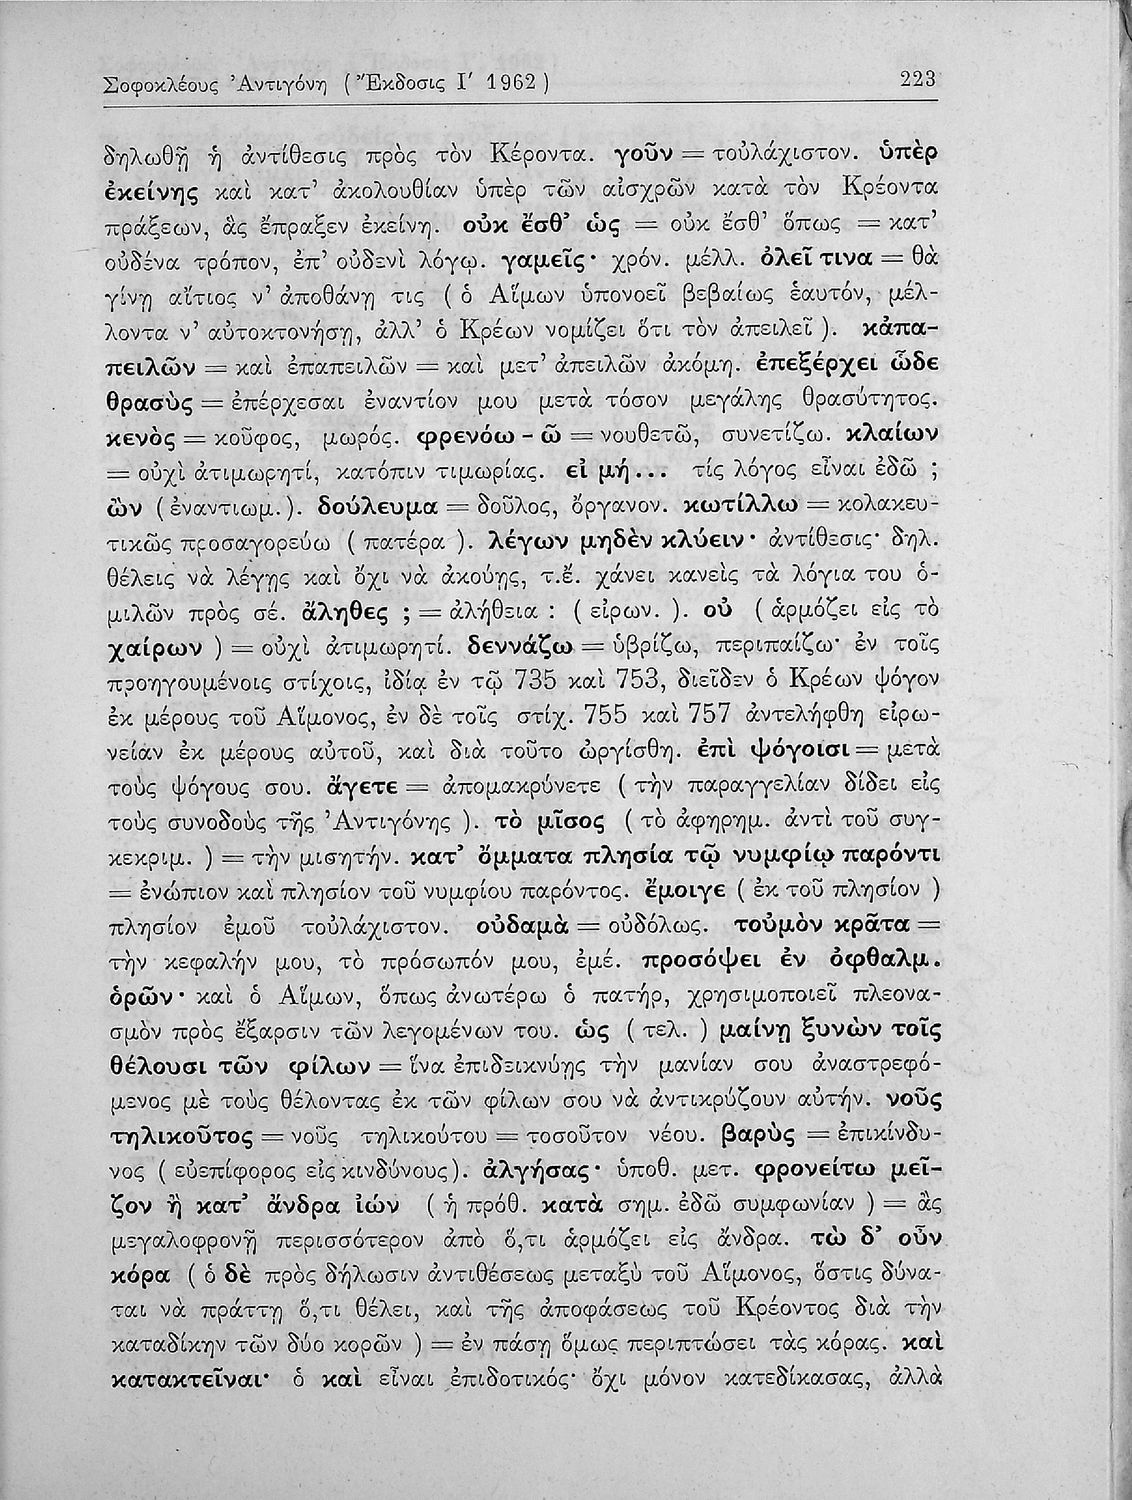 Σοφοκλέους Ἀντιγόνη ( Ἔκδοσις Ι΄ 1962 ) 223
δηλωθῇ ἡ ἀντίθεσις πρὸς τὸν Κέροντα. γοῦν = τοὐλάχιστον. ὑπὲρ
ἐκείνης καὶ κατ’ ἀκολουθίαν ὑπὲρ τῶν αἰσχρῶν κατὰ τὸν Κρέοντα
πράξεων, ἃς ἔπραξεν ἐκείνη. οὐκ ἔσθ’ ὡς = οὐκ ἔσθ’ ὅπως = κατ’
οὐδένα τρόπον, ἐπ’ οὐδενὶ λόγῳ. γαμεῖς· χρόν. μέλλ. ὀλεῖ τινα = θὰ
γίνῃ αἴτιος ν’ ἀποθάνῃ τις ( ὁ Αἵμων ὑπονοεῖ βεβαίως ἑαυτόν, μέλ-
λοντα ν’ αὐτοκτονήσῃ, ἀλλ’ ὁ Κρέων νομίζει ὅτι τὸν ἀπειλεῖ ). κἀπα-
πειλῶν = καὶ ἐπαπειλῶν = καὶ μετ’ ἀπειλῶν ἀκόμη. ἐπεξέρχει ὧδε
θρασὺς = ἐπέρχεσαι ἐναντίον μου μετὰ τόσον μεγάλης θρασύτητος.
κενὸς = κοῦφος, μωρός. φρενόω - ῶ = νουθετῶ, συνετίζω. κλαίων
= οὐχὶ ἀτιμωρητί, κατόπιν τιμωρίας. εἰ μή... τίς λόγος εἶναι ἐδῶ ;
ὢν ( ἐναντιωμ. ). δούλευμα = δοῦλος, ὄργανον. κωτίλλω = κολακευ-
τικῶς προσαγορεύω ( πατέρα ). λέγων μηδὲν κλύειν· ἀντίθεσις· δηλ.
θέλεις νὰ λέγῃς καὶ ὄχι νὰ ἀκούῃς, τ.ἔ. χάνει κανεὶς τὰ λόγια του ὁ-
μιλῶν πρὸς σέ. ἄληθες ; = ἀλήθεια : ( εἰρων. ). οὐ ( ἁρμόζει εἰς τὸ
χαίρων ) = οὐχὶ ἀτιμωρητί. δεννάζω = ὑβρίζω, περιπαίζω· ἐν τοῖς
προηγουμένοις στίχοις, ἰδίᾳ ἐν τῷ 735 καὶ 753, διεῖδεν ὁ Κρέων ψόγον
ἐκ μέρους τοῦ Αἵμονος, ἐν δὲ τοῖς στίχ. 755 καὶ 757 ἀντελήφθη εἰρω-
νείαν ἐκ μέρους αὐτοῦ, καὶ διὰ τοῦτο ὠργίσθη. ἐπὶ ψόγοισι = μετὰ
τοὺς ψόγους σου. ἄγετε = ἀπομακρύνετε ( τὴν παραγγελίαν δίδει εἰς
τοὺς συνοδοὺς τῆς Ἀντιγόνης ). τὸ μῖσος ( τὸ ἀφηρημ. ἀντὶ τοῦ συγ-
κεκριμ. ) = τὴν μισητήν. κατ’ ὄμματα πλησία τῷ νυμφίῳ παρόντι
= ἐνώπιον καὶ πλησίον τοῦ νυμφίου παρόντος. ἔμοιγε ( ἐκ τοῦ πλησίον )
πλησίον ἐμοῦ τοὐλάχιστον. οὐδαμὰ = οὐδόλως. τοὐμὸν κρᾶτα =
τὴν κεφαλήν μου, τὸ πρόσωπόν μου, ἐμέ. προσόψει ἐν ὀφθαλμ.
ὁρῶν· καὶ ὁ Αἵμων, ὅπως ἀνωτέρω ὁ πατήρ, χρησιμοποιεῖ πλεονα-
σμὸν πρὸς ἔξαρσιν τῶν λεγομένων του. ὡς ( τελ. ) μαίνῃ ξυνὼν τοῖς
θέλουσι τῶν φίλων = ἵνα ἐπιδεικνύῃς τὴν μανίαν σου ἀναστρεφό-
μενος μὲ τοὺς θέλοντας ἐκ τῶν φίλων σου νὰ ἀντικρύζουν αὐτήν. νοῦς
τηλικοῦτος = νοῦς τηλικούτου = τοσοῦτον νέου. βαρὺς = ἐπικίνδυ-
νος ( εὐεπίφορος εἰς κινδύνους). ἀλγήσας· ὑποθ. μετ. φρονείτω μεῖ-
ζον ἢ κατ’ ἄνδρα ἰών ( ἡ πρόθ. κατὰ σημ. ἐδῶ συμφωνίαν ) = ἂς
μεγαλοφρονῇ περισσότερον ἀπὸ ὅ,τι ἁρμόζει εἰς ἄνδρα. τὼ δ’ οὖν
κόρα ( ὁ δὲ πρὸς δήλωσιν ἀντιθέσεως μεταξὺ τοῦ Αἵμονος, ὅστις δύνα-
ται νὰ πράττῃ ὅ,τι θέλει, καὶ τῆς ἀποφάσεως τοῦ Κρέοντος διὰ τὴν
καταδίκην τῶν δύο κορῶν ) = ἐν πάσῃ ὅμως περιπτώσει τὰς κόρας. καὶ
κατακτεῖναι· ὁ καὶ εἶναι ἐπιδοτικός· ὄχι μόνον κατεδίκασας, ἀλλὰ